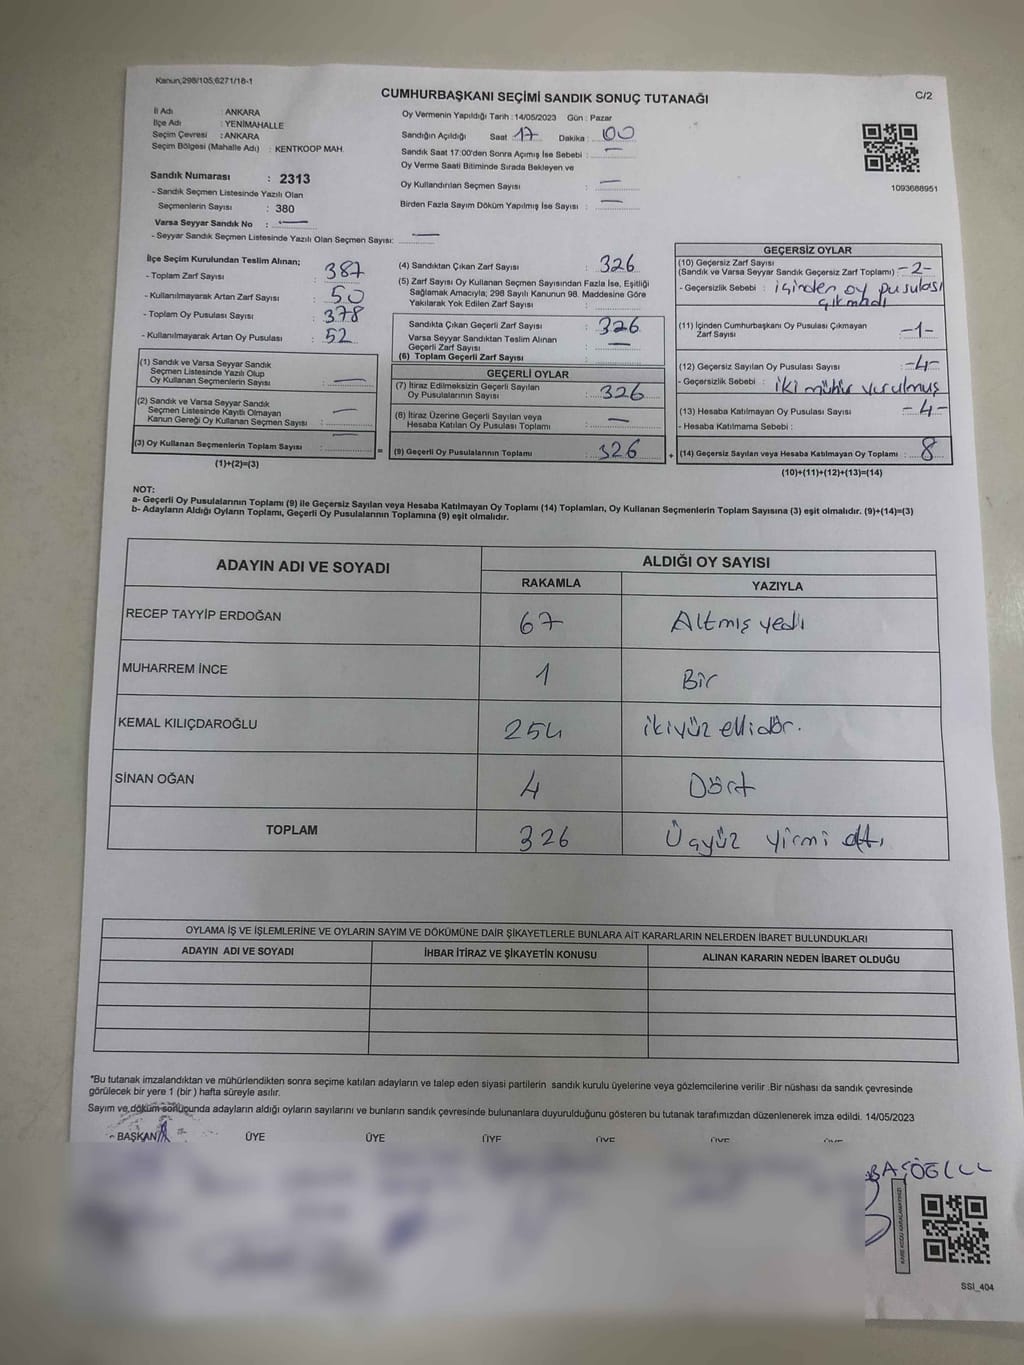 Kanun;298/105,6271/18-1
CUMHURBAŞKANI SEÇİMİ SANDIK SONUÇ TUTANAĞI
C/2
İl Adı : ANKARA
İlçe Adı : YENİMAHALLE
Seçim Çevresi : ANKARA
Seçim Bölgesi (Mahalle Adı) : KENTKOOP MAH.
Sandık Numarası : 2313
- Sandık Seçmen Listesinde Yazılı Olan
Seçmenlerin Sayısı : 380
Varsa Seyyar Sandık No : —
- Seyyar Sandık Seçmen Listesinde Yazılı Olan Seçmen Sayısı: —
Oy Vermenin Yapıldığı Tarih : 14/05/2023 Gün : Pazar
Sandığın Açıldığı Saat 17 Dakika : 00
Sandık Saat 17:00'den Sonra Açımış İse Sebebi : —
Oy Verme Saati Bitiminde Sırada Bekleyen ve
Oy Kullandırılan Seçmen Sayısı : —
Birden Fazla Sayım Döküm Yapılmış İse Sayısı : —
1093688951
İlçe Seçim Kurulundan Teslim Alınan;
- Toplam Zarf Sayısı : 387
- Kullanılmayarak Artan Zarf Sayısı : 50
- Toplam Oy Pusulası Sayısı : 378
- Kullanılmayarak Artan Oy Pusulası : 52
(1) Sandık ve Varsa Seyyar Sandık
Seçmen Listesinde Yazılı Olup
Oy Kullanan Seçmenlerin Sayısı : —
(2) Sandık ve Varsa Seyyar Sandık
Seçmen Listesinde Kayıtlı Olmayan
Kanun Gereği Oy Kullanan Seçmen Sayısı : —
(3) Oy Kullanan Seçmenlerin Toplam Sayısı : —
(1)+(2)=(3)
(4) Sandıktan Çıkan Zarf Sayısı : 326
(5) Zarf Sayısı Oy Kullanan Seçmen Sayısından Fazla İse, Eşitliği
Sağlamak Amacıyla; 298 Sayılı Kanunun 98. Maddesine Göre
Yakılarak Yok Edilen Zarf Sayısı :
Sandıkta Çıkan Geçerli Zarf Sayısı : 326
Varsa Seyyar Sandıktan Teslim Alınan
Geçerli Zarf Sayısı : —
(6) Toplam Geçerli Zarf Sayısı :
GEÇERLİ OYLAR
(7) İtiraz Edilmeksizin Geçerli Sayılan
Oy Pusulalarının Sayısı : 326
(8) İtiraz Üzerine Geçerli Sayılan veya
Hesaba Katılan Oy Pusulası Toplamı : —
= (9) Geçerli Oy Pusulalarının Toplamı : 326
GEÇERSİZ OYLAR
(10) Geçersiz Zarf Sayısı
(Sandık ve Varsa Seyyar Sandık Geçersiz Zarf Toplamı) : -2-
- Geçersizlik Sebebi : içinden oy pusulası
çıkmadı
(11) İçinden Cumhurbaşkanı Oy Pusulası Çıkmayan
Zarf Sayısı -1-
(12) Geçersiz Sayılan Oy Pusulası Sayısı -4-
- Geçersizlik Sebebi : iki mühür vurulmuş
(13) Hesaba Katılmayan Oy Pusulası Sayısı -4-
- Hesaba Katılmama Sebebi :
+ (14) Geçersiz Sayılan veya Hesaba Katılmayan Oy Toplamı : 8
(10)+(11)+(12)+(13)=(14)
NOT:
a- Geçerli Oy Pusulalarının Toplamı (9) ile Geçersiz Sayılan veya Hesaba Katılmayan Oy Toplamı (14) Toplamları, Oy Kullanan Seçmenlerin Toplam Sayısına (3) eşit olmalıdır. (9)+(14)=(3)
b- Adayların Aldığı Oyların Toplamı, Geçerli Oy Pusulalarının Toplamına (9) eşit olmalıdır.
ADAYIN ADI VE SOYADI
ALDIĞI OY SAYISI
RAKAMLA YAZIYLA
RECEP TAYYİP ERDOĞAN 67 Altmış yedi
MUHARREM İNCE 1 Bir
KEMAL KILIÇDAROĞLU 254 ikiyüz ellidör.
SİNAN OĞAN 4 Dört
TOPLAM 326 Üçyüz yirmi altı
OYLAMA İŞ VE İŞLEMLERİNE VE OYLARIN SAYIM VE DÖKÜMÜNE DAİR ŞİKAYETLERLE BUNLARA AİT KARARLARIN NELERDEN İBARET BULUNDUKLARI
ADAYIN ADI VE SOYADI İHBAR İTİRAZ VE ŞİKAYETİN KONUSU ALINAN KARARIN NEDEN İBARET OLDUĞU
*Bu tutanak imzalandıktan ve mühürlendikten sonra seçime katılan adayların ve talep eden siyasi partilerin sandık kurulu üyelerine veya gözlemcilerine verilir .Bir nüshası da sandık çevresinde
görülecek bir yere 1 (bir ) hafta süreyle asılır.
Sayım ve döküm sonucunda adayların aldığı oyların sayılarını ve bunların sandık çevresinde bulunanlara duyurulduğunu gösteren bu tutanak tarafımızdan düzenlenerek imza edildi. 14/05/2023
BAŞKAN ÜYE ÜYE ÜYE ÜYE ÜYE ÜYE
SSİ_404